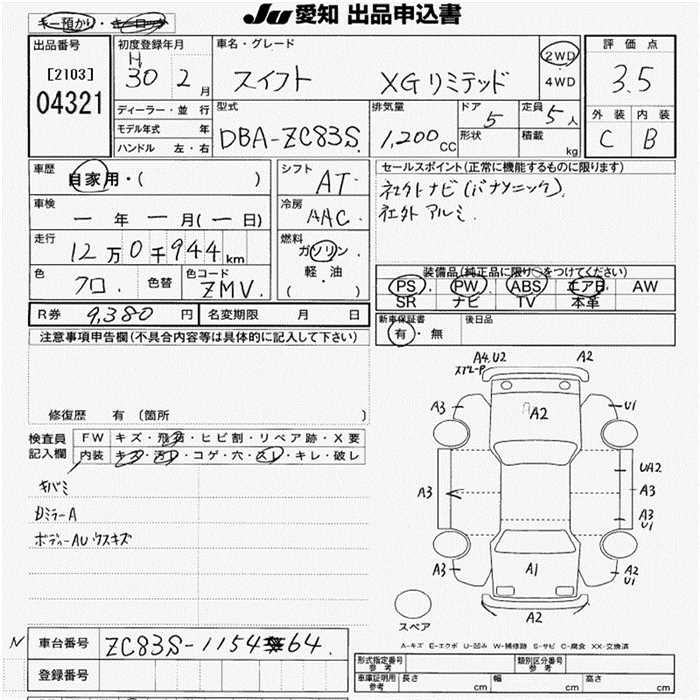 Ju 愛知 出品申込書
キー預かり・キーロック
出品番号
[2103]
04321
初度登録年月
H
30 2月
車名・グレード
スイフト XGリミテッド
2WD
4WD
評価点
3.5
外装 内装
C B
ディーラー・並行
モデル年式 年
ハンドル 左・右
型式
DBA-ZC83S.
排気量
1,200cc
ドア
5
定員
5人
形状
積載
kg
車歴
自家用・( )
シフト
AT.
セールスポイント(正常に機能するものに限ります)
社外ナビ(パナソニック).
社外アルミ.
車検
一年一月(一日)
冷房
AAC.
走行
12万0千944km
燃料
ガソリン・
軽・油
( )
色
クロ.
色替
色コード
ZMV.
装備品(純正品に限り○をつけてください)
PS PW ABS エアB AW
SR ナビ TV 本革
R券 9,380円
名変期限 月 日
新車保証書
有・無
後日品
注意事項申告欄(不具合内容等は具体的に記入して下さい)
修復歴 有 (箇所 )
検査員
記入欄
FW キズ・飛石・ヒビ割・リペア跡・X要
内装 キズ・汚レ・コゲ・穴・スレ・キレ・破レ
キバミ
Rミラー A
ボディーAUウスキズ
A4.U2
A2
A3
A2
U1
UA2
A3
A3
A3
U1
A3
A1
A2
U1
A2
スペア
A-キズ E-エクボ U-凹み W-補修跡 S-サビ C-腐食 XX-交換済
N 車台番号 ZC83S-115464.
登録番号
型式指定番号
参考
類別区分番号
参考
車庫証明用
参考
長さ cm
幅 cm
高さ cm